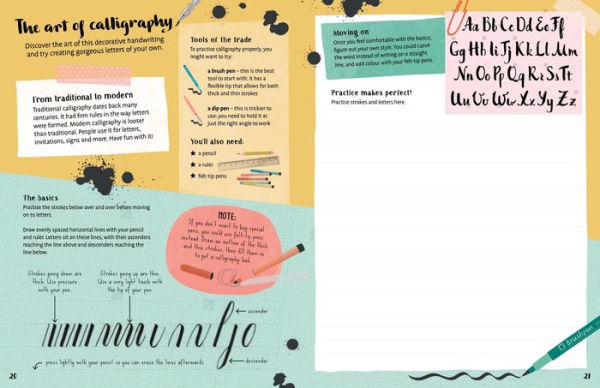 The art of calligraphy
Discover the art of this decorative handwriting
and try creating gorgeous letters of your own.
From traditional to modern
Traditional calligraphy dates back many
centuries. It had firm rules in the way letters
were formed. Modern calligraphy is looser
than traditional. People use it for letters,
invitations, signs and more. Have fun with it!
Tools of the trade
To practise calligraphy properly, you
might want to try:
a brush pen – this is the best
tool to start with; it has a
flexible tip that allows for both
thick and thin strokes
a dip pen – this is trickier to
use: you need to hold it at
just the right angle to work
You'll also need:
a pencil
a ruler
felt tip pens
The basics
Practise the strokes below over and over before moving
on to letters.
Draw evenly spaced horizontal lines with your pencil
and ruler. Letters sit on these lines, with their ascenders
reaching the line above and descenders reaching the
line below.
NOTE:
If you don't want to buy special
pens, you could use felt-tip pens
instead. Draw an outline of the thick
and thin strokes, then fill them in
to get a calligraphy look.
Strokes going down are
thick. Use pressure
with your pen.
Strokes going up are thin.
Use a very light touch with
the tip of your pen.
ascender
descender
press lightly with your pencil so you can erase the lines afterwards
20
Moving on
Once you feel comfortable with the basics,
figure out your own style. You could curve
the word instead of writing on a straight
line, and add colour with your felt-tip pens.
Aa Bb Cc Dd Ee Ff
Gg Hh Ii Jj Kk Ll Mm
Nn Oo Pp Qq Rr Ss Tt
Uu Vv Ww Xx Yy Zz
Practice makes perfect!
Practise strokes and letters here.
Brush pen
21